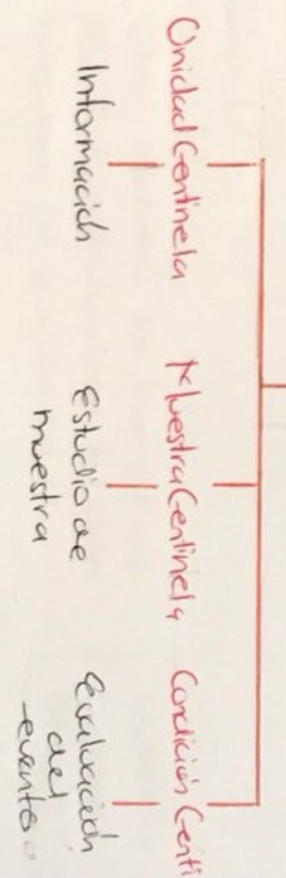 Unidad Centinela
Información
Muestra Centinela
Estudio de
muestra
Condición Centi
Evaluación
del
evento